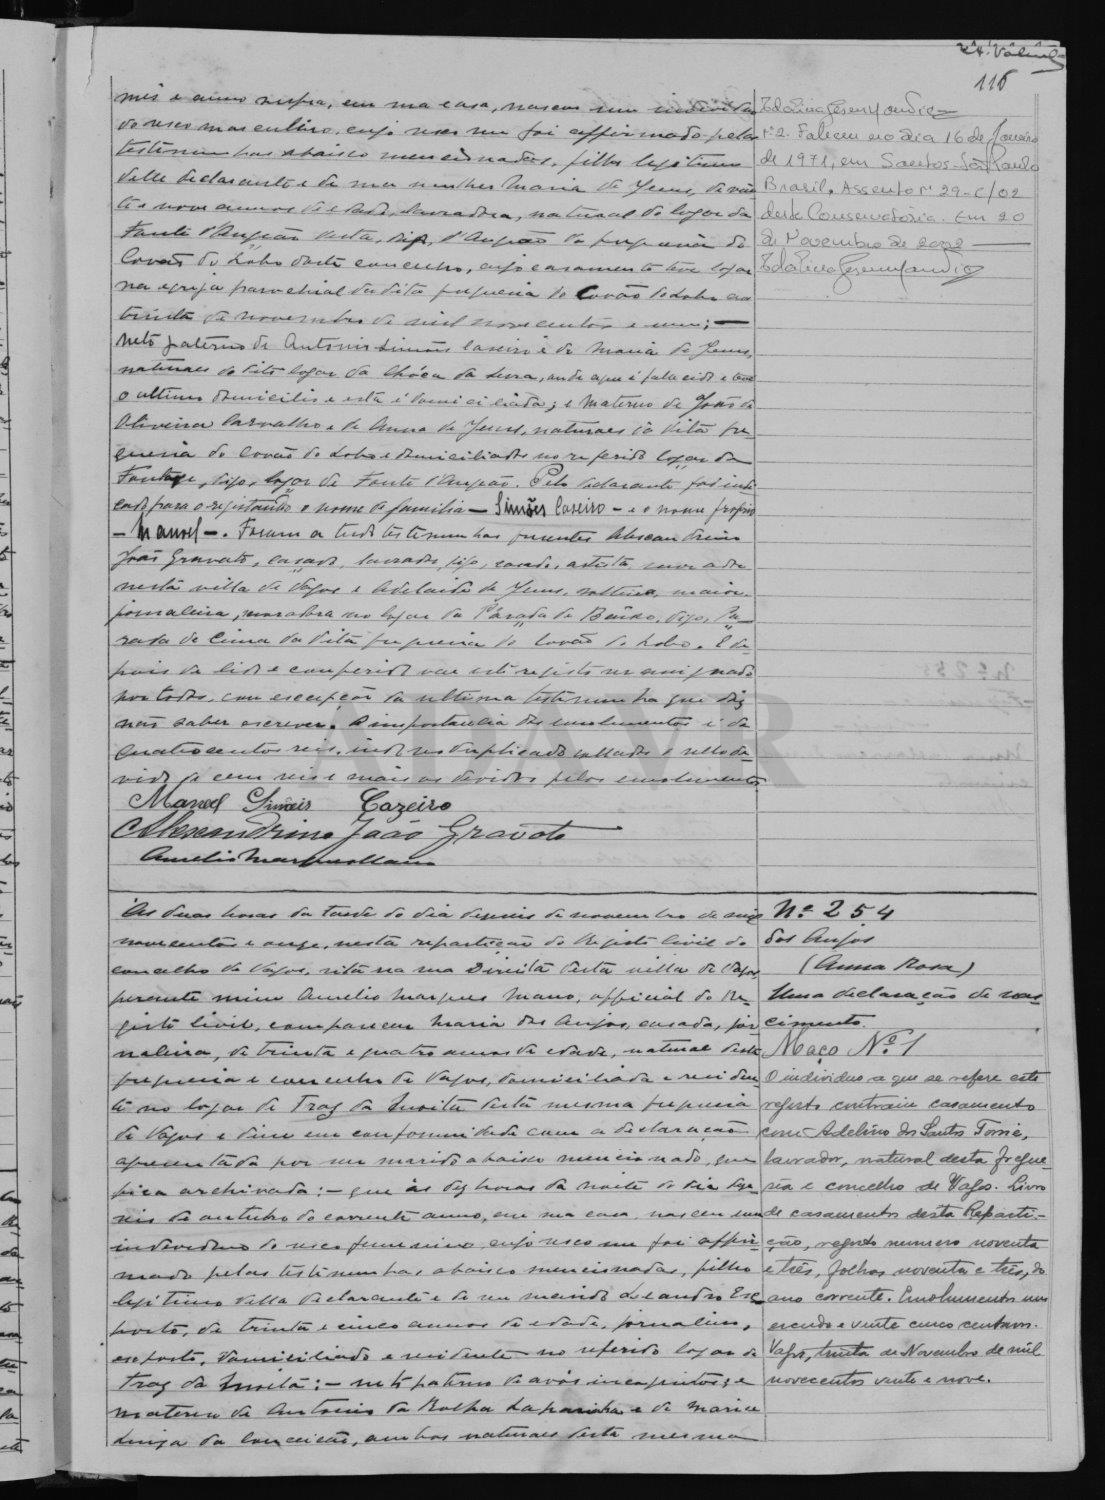 116
mês e anno supra, em sua casa, nasceu um individuo
do sexo masculino, cujo sexo me foi affirmado pelas
testemunhas abaixo mencionadas, filho legitimo
delle declarante e de sua mulher Maria de Jesus, de vin-
te e nove annos de edade, lavradora, natural do logar da
Fonte d'Angeão desta, digo, d'Angeão da freguesia de
Covão do Lobo deste concelho, cujo casamento teve logar
na egreja parochial da dita freguesia de Covão do Lobo aos
trinta de novembro de mil novecentos e um; —
neto paterno de Antonio Simões Caseiro e de Maria de Jesus,
naturaes do dito logar da Chóca da Serra, onde aquele é falecido e teve
o ultimo domicilio e esta é domiciliada; e materno de João de
Oliveira Carvalho e de Anna de Jesus, naturaes da dita fre-
guesia do Covão do Lobo e domiciliados no referido logar da
Fonte, digo, logar de Fonte d'Angeão. Pelo declarante foi indi-
cado para o registando o nome de familia — Simões Caseiro — e o nome proprio
— Manoel —. Foram a tudo testemunhas presentes Alexandrino
João Gravato, casado, lavrador, digo, casado, artista, morador
nesta villa de Vagos e Adelaide de Jesus, solteira, maior,
jornaleira, moradora no logar da Parada de Baixo, digo, Pa-
rada de Cima da dita freguesia do Covão do Lobo. E de-
pois de lido e conferido vae este registo ser assignado
por todos, com excepção da ultima testemunha que diz
não saber escrever. A importancia dos emolumentos é de
quatrocentos reis, indo no duplicado collados o sello de-
vido de cem reis e mais os devidos pelos emolumentos
Manoel Simões Cazeiro
Alexandrino João Gravato
Aurelio Marques Mano
nº 2. Faleceu no dia 16 de Janeiro
de 1971, em Santos - São Paulo
Brasil. Assento nº 29-C/02
desta Conservatória. Em 20
de Novembro de 2002 —
Ás duas horas da tarde do dia dezseis de novembro de mil
novecentos e onze, nesta repartição do Registo Civil do
concelho de Vagos, sita na rua Direita desta villa de Vagos,
perante mim Aurelio Marques Mano, official do Re-
gisto Civil, compareceu Maria dos Anjos, casada, jor-
naleira, de trinta e quatro annos de edade, natural desta
freguesia e concelho de Vagos, domiciliada e residen-
te no logar de Traz da Moita desta mesma freguesia
de Vagos e disse em conformidade com a declaração
apresentada por seu marido abaixo mencionado, que
fica archivada: — que ás dez horas da noite do dia deze-
seis de outubro do corrente anno, em sua casa, nasceu um
individuo do sexo feminino, cujo sexo me foi affir-
mado pelas testemunhas abaixo mencionadas, filho
legitimo della declarante e de seu marido Leandro Ex-
posto, de trinta e cinco annos de edade, jornaleiro,
exposto, domiciliado e residente no referido logar de
Traz da Moita: — neto paterno de avós incognitos; e
materno de Antonio da Rocha Laparinha e de Maria
Luiza da Conceição, ambos naturaes desta mesma
Nº 254
dos Anjos
(Anna Rosa)
Uma declaração de nas-
cimento.
Maço Nº 1
O individuo a que se refere este
registo contraiu casamento
com Adelino dos Santos Torrie,
lavrador, natural desta fregue-
sia e concelho de Vagos. Livro
de casamentos desta Reparti-
ção, registo numero noventa
e três, folhas noventa e três, do
ano corrente. Emolumentos um
escudo e vinte cinco centavos.
Vagos, trinta de Novembro de mil
novecentos vinte e nove.
ADAVR